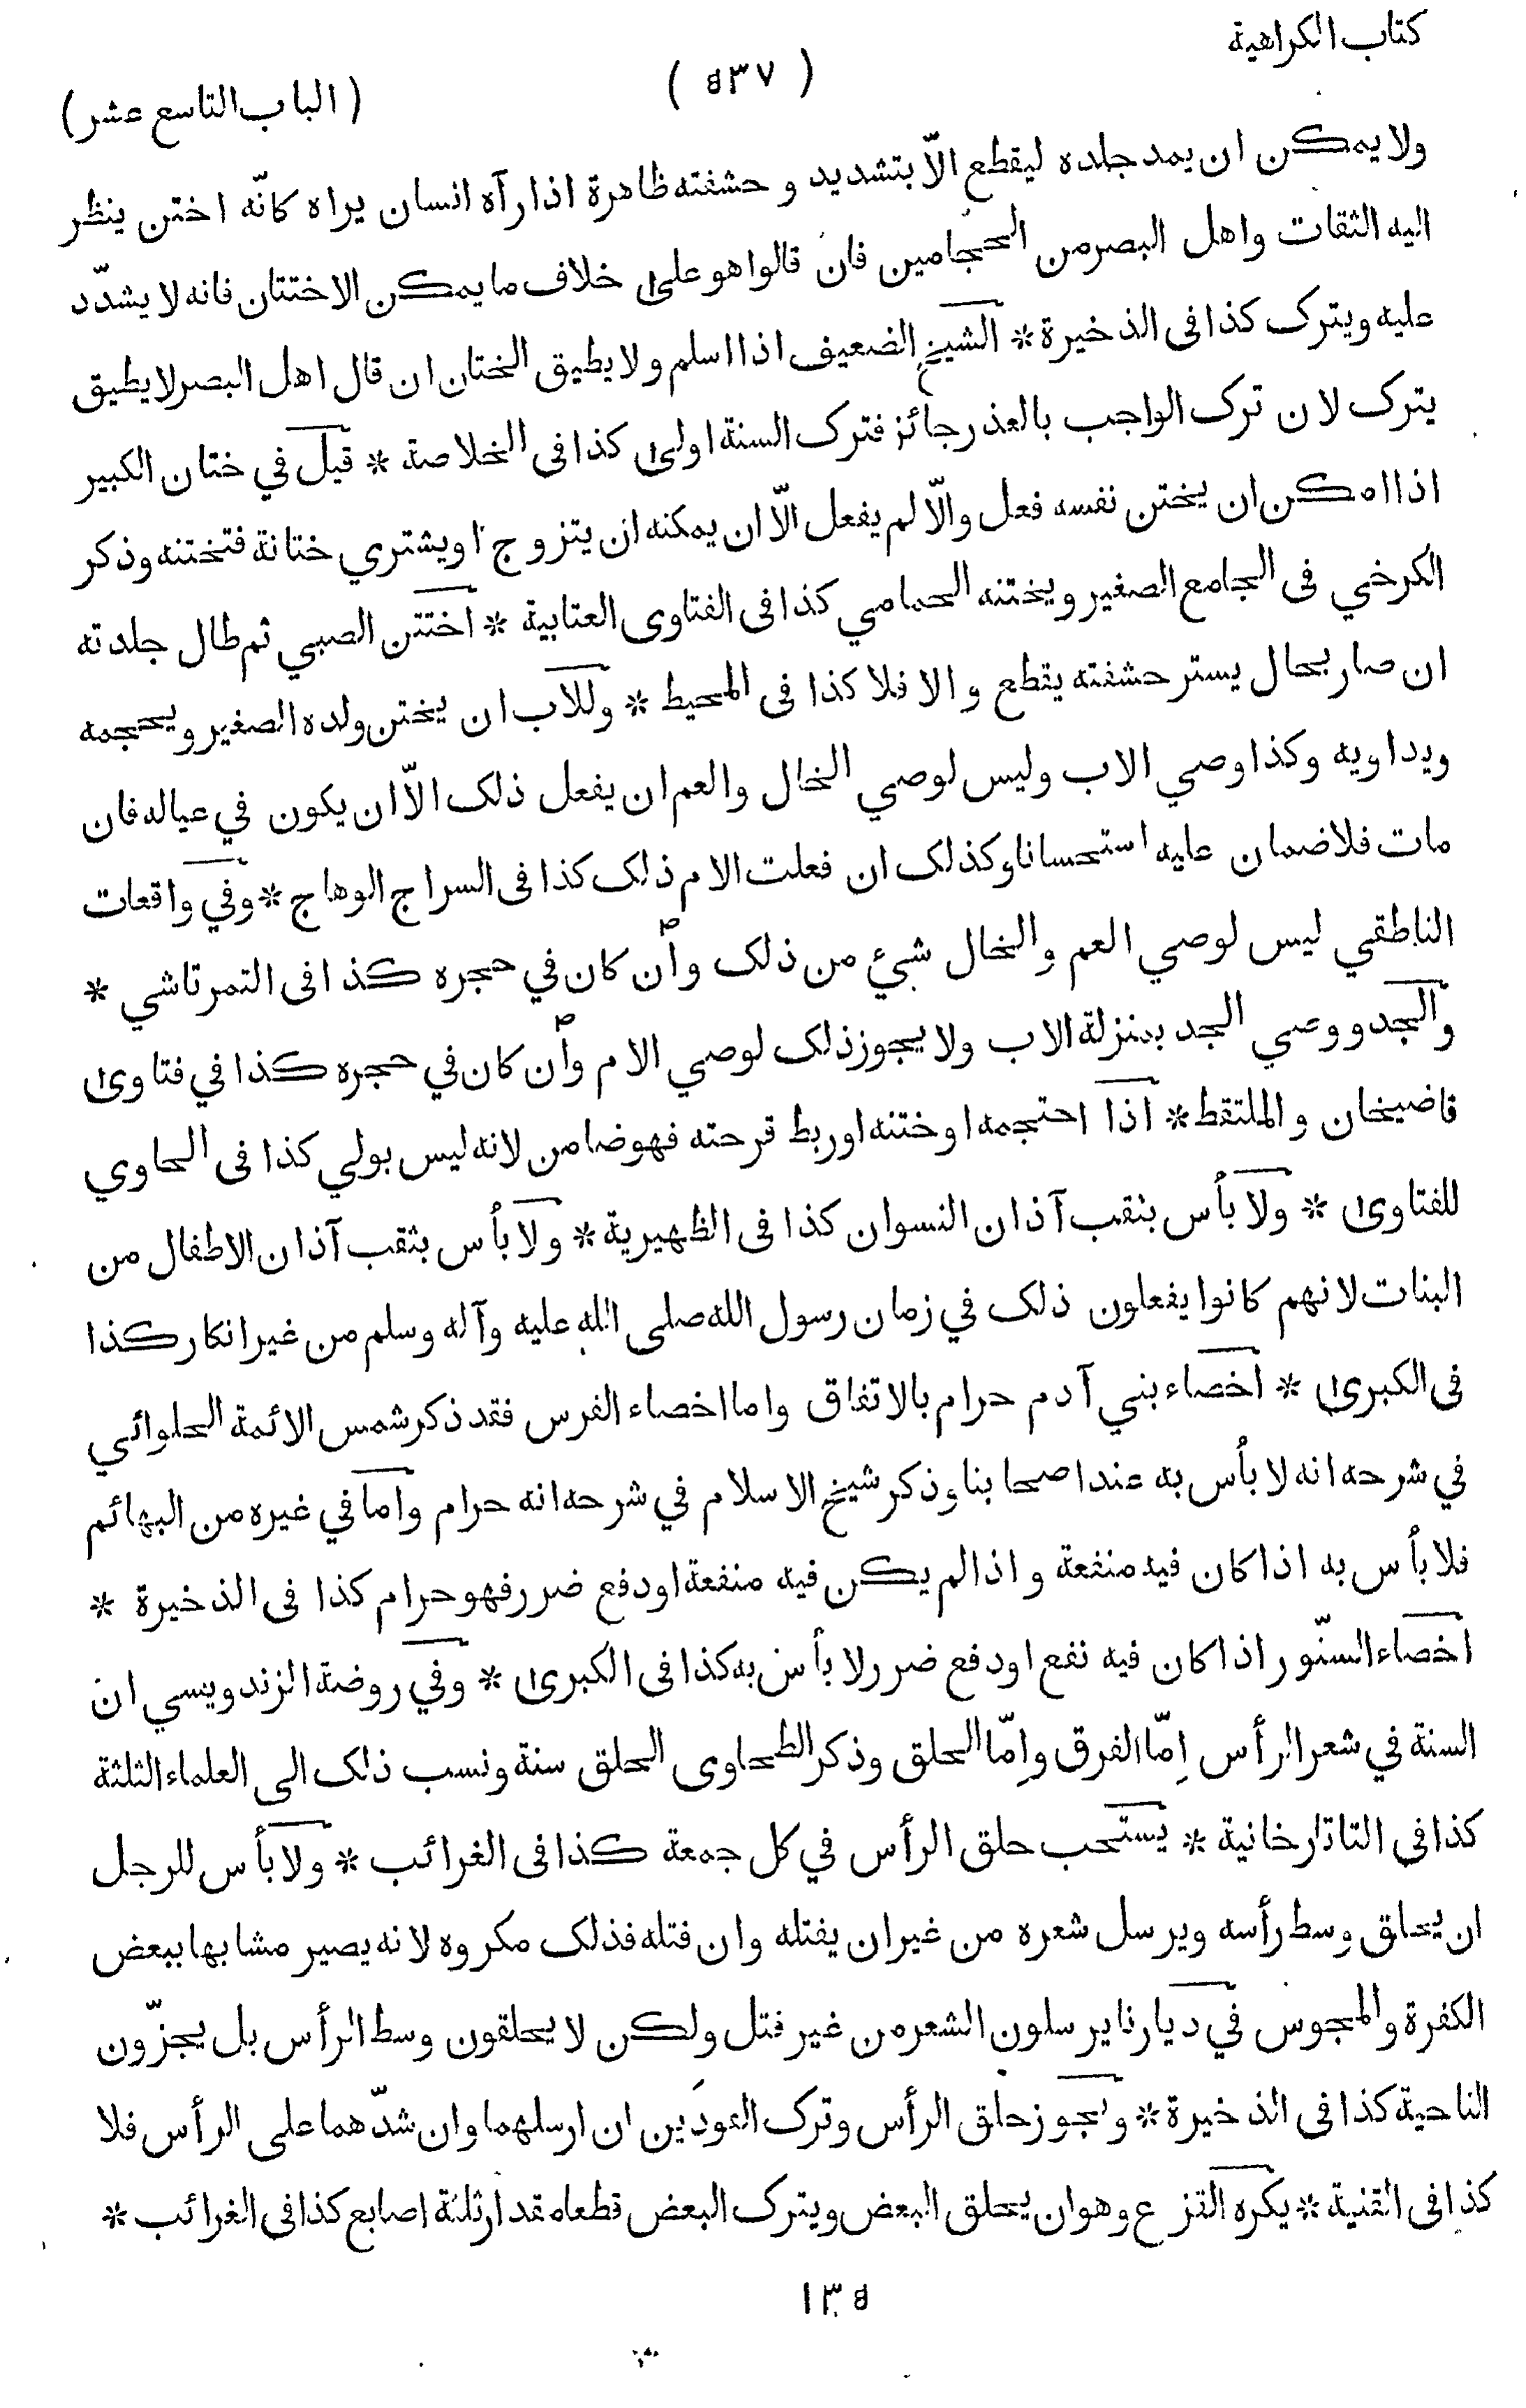 كتاب الكراهية
( ٥٣٧ )
( الباب التاسع عشر )
ولا يمكن ان يمد جلده ليقطع الاّ بتشديد و حشفته ظاهرة اذا رآه انسان يراه كانّه اختن ينظر
اليه الثقات واهل البصر من الحجامين فان قالوا هو على خلاف ما يمكن الاختتان فانه لا يشدّد
عليه ويترك كذا فى الذخيرة * الشيخ الضعيف اذا اسلم ولا يطيق الختان ان قال اهل البصر لا يطيق
يترك لان ترك الواجب بالعذر جائز فترك السنة اولى كذا فى الخلاصة * قيل في ختان الكبير
اذا امكن ان يختن نفسه فعل والاّ لم يفعل الاّ ان يمكنه ان يتزوج او يشتري ختانة فتختنه وذكر
الكرخي فى الجامع الصغير ويختنه الحمامي كذا فى الفتاوى العتابية * اختتن الصبي ثم طال جلدته
ان صار بحال يستر حشفته يقطع والا فلا كذا فى المحيط * وللاب ان يختن ولده الصغير ويحجمه
ويداويه وكذا وصي الاب وليس لوصي الخال والعم ان يفعل ذلك الاّ ان يكون في عياله فان
مات فلا ضمان عليه استحسانا وكذلك ان فعلت الام ذلك كذا فى السراج الوهاج * وفي واقعات
الناطقي ليس لوصي العم والخال شيء من ذلك وان كان في حجره كذا فى التمرتاشي *
والجد ووصي الجد بمنزلة الاب ولا يجوز ذلك لوصي الام وان كان في حجره كذا في فتاوى
قاضيخان والملتقط * اذا احتجمه او ختنه او ربط قرحته فهو ضامن لانه ليس بولي كذا فى الحاوي
للفتاوى * ولا بأس بثقب آذان النسوان كذا فى الظهيرية * ولا بأس بثقب آذان الاطفال من
البنات لانهم كانوا يفعلون ذلك في زمان رسول الله صلى الله عليه وآله وسلم من غير انكار كذا
فى الكبرى * اخصاء بني آدم حرام بالاتفاق واما اخصاء الفرس فقد ذكر شمس الائمة الحلوائي
في شرحه انه لا بأس به عند اصحابنا وذكر شيخ الاسلام في شرحه انه حرام واما في غيره من البهائم
فلا بأس به اذا كان فيه منفعة واذا لم يكن فيه منفعة او دفع ضرر فهو حرام كذا فى الذخيرة *
اخصاء السنّور اذا كان فيه نفع او دفع ضرر لا بأس به كذا فى الكبرى * وفي روضة الزندويسي ان
السنة في شعر الرأس اِمّا الفرق واِمّا الحلق وذكر الطحاوى الحلق سنة ونسب ذلك الى العلماء الثلثة
كذا فى التاتارخانية * يستحب حلق الرأس في كل جمعة كذا فى الغرائب * ولا بأس للرجل
ان يحلق وسط رأسه ويرسل شعره من غير ان يفتله وان فتله فذلك مكروه لانه يصير مشابها ببعض
الكفرة والمجوس في ديارنا يرسلون الشعر من غير فتل ولكن لا يحلقون وسط الرأس بل يجزّون
الناحية كذا فى الذخيرة * ويجوز حلق الرأس وترك الفودين ان ارسلهما وان شدّهما على الرأس فلا
كذا فى القنية * يكره القزع وهو ان يحلق البعض ويترك البعض قطعا مقدار ثلثة اصابع كذا فى الغرائب *
١٣٥